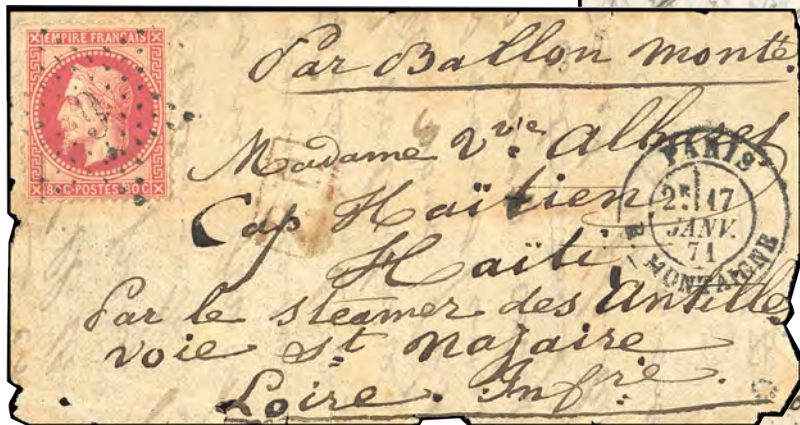 EMPIRE FRANÇAIS
80C·POSTES·80C
9
Par Ballon monté.
Madame Vve
Cap Haïtien
Haïti
Par le steamer des Antilles
voie St Nazaire
Loire. Infre.
PARIS
2E 17
JANV.
71
R. MONTAIGNE